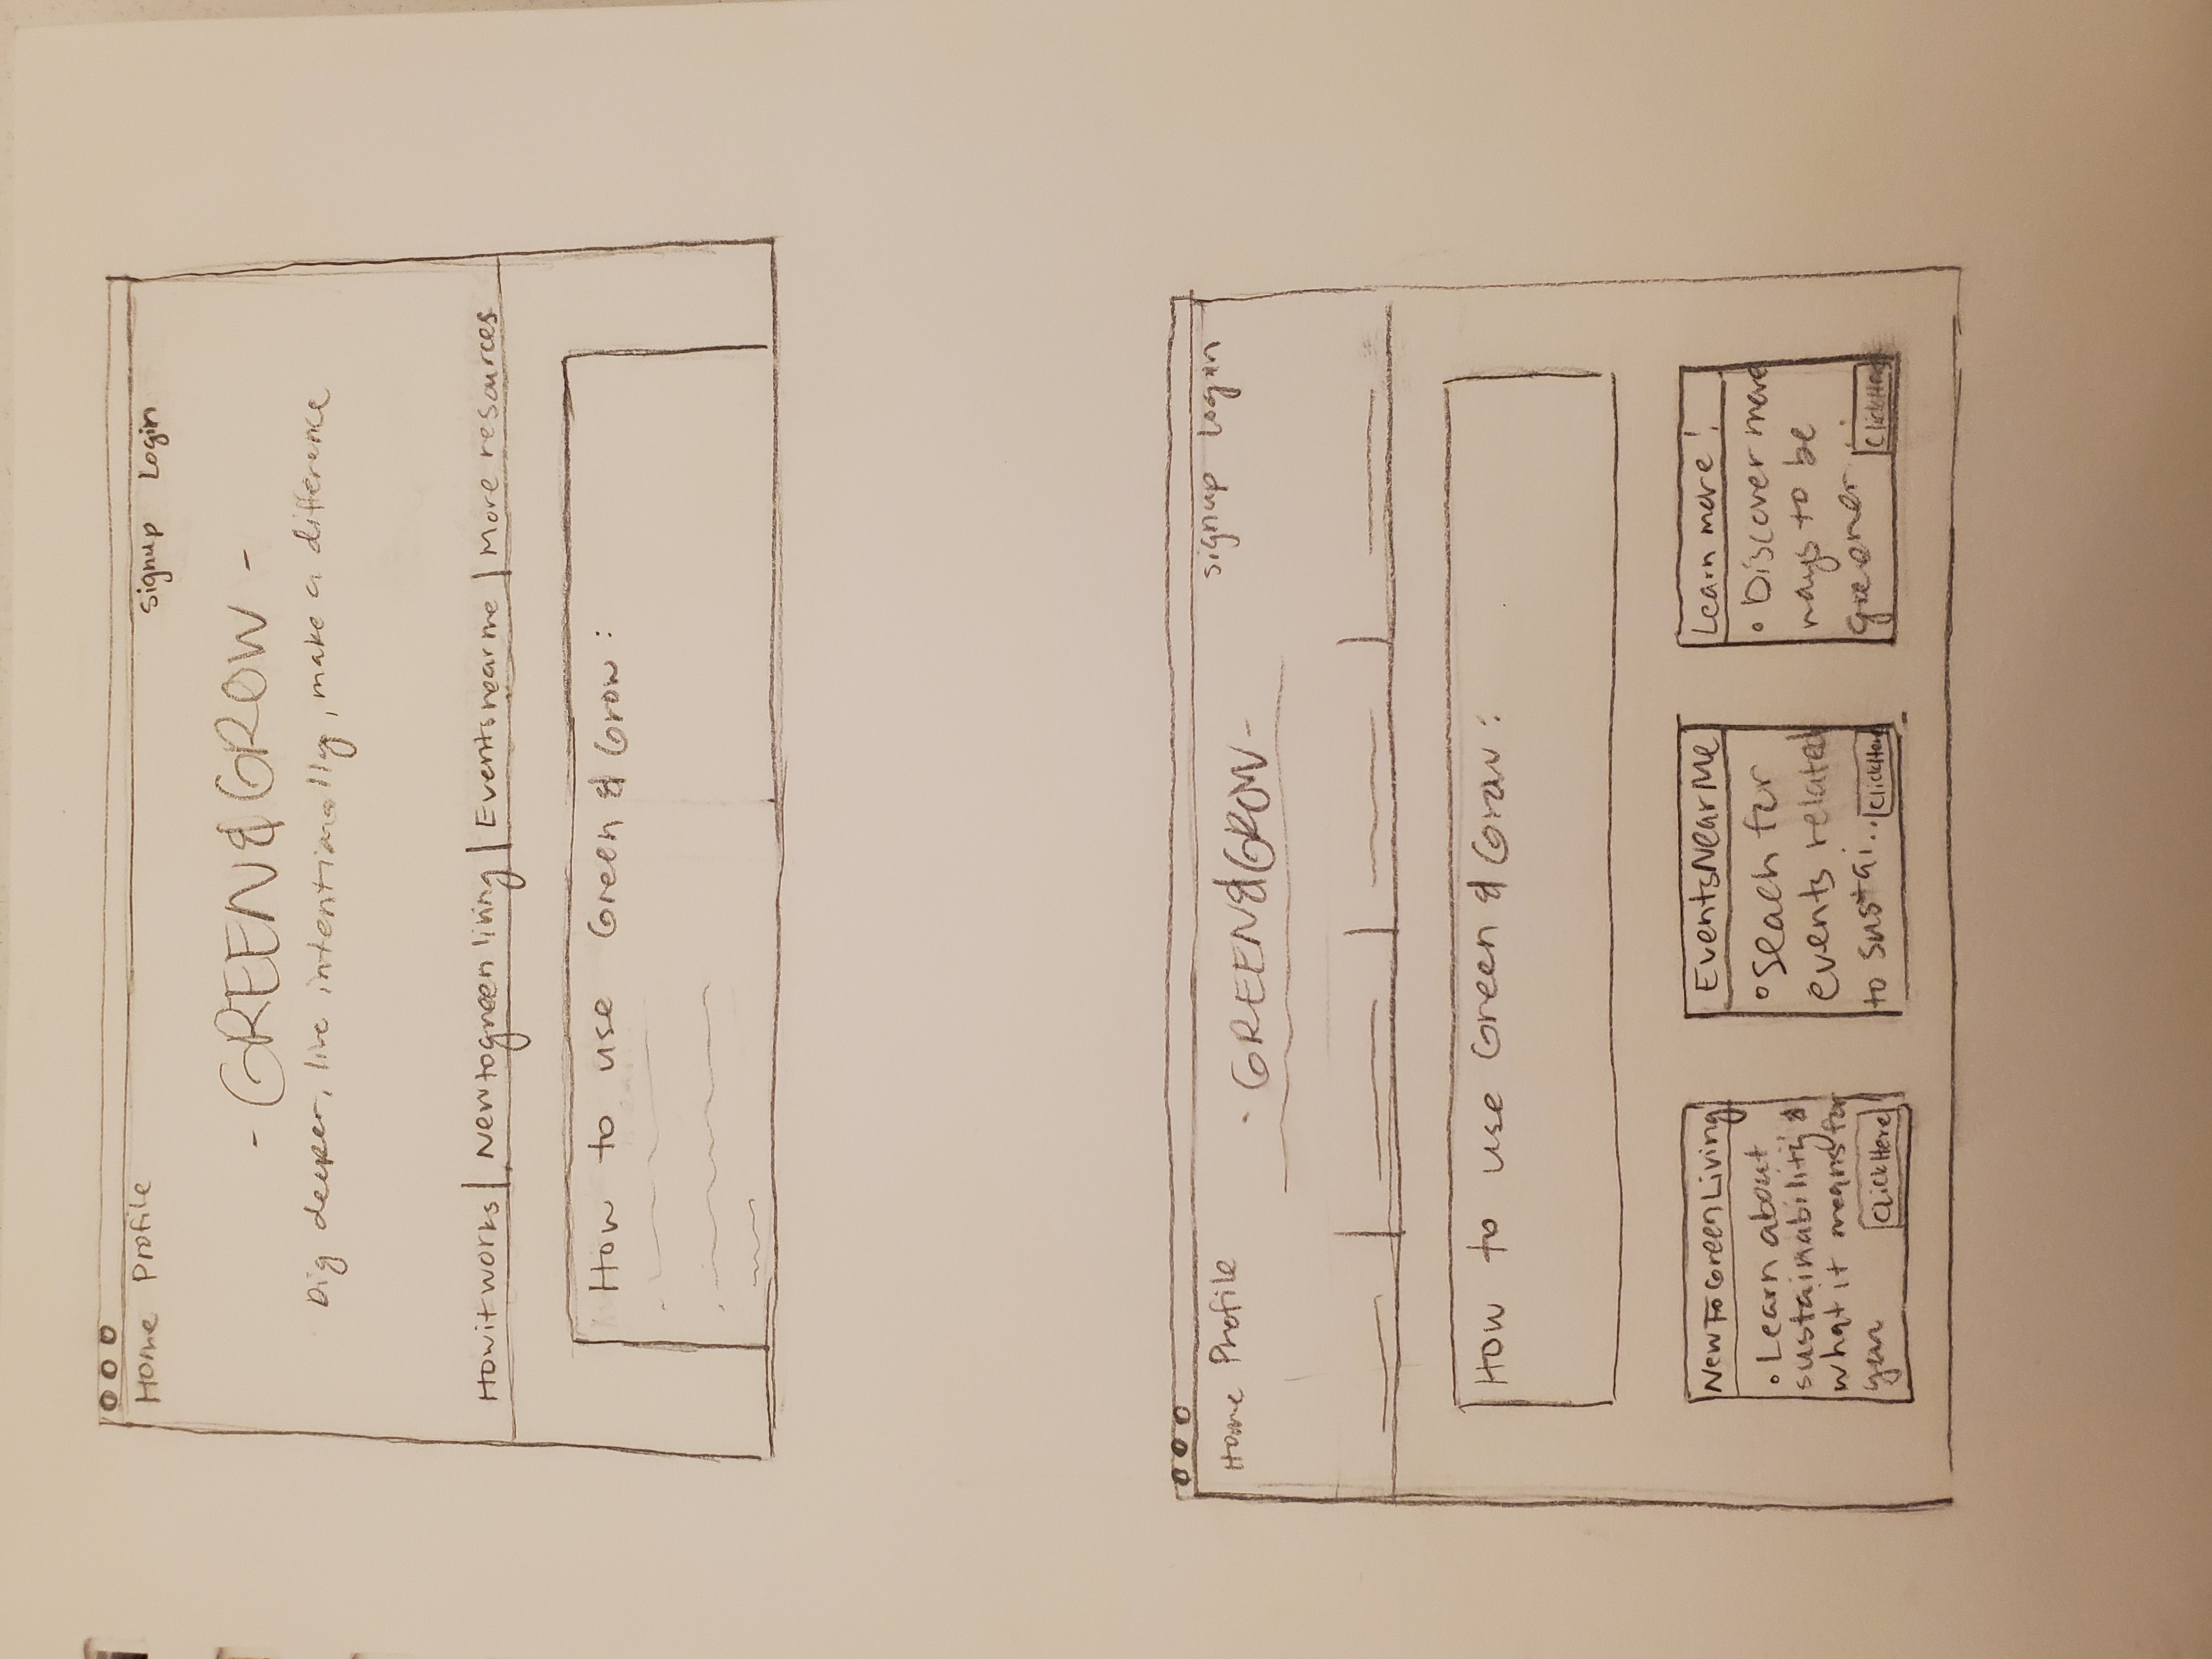 Home Profile signup Login
- GREEN & GROW -
Dig deeper, live intentionally, make a difference
How it works | New to green living | Events near me | More resources
How to use Green & Grow :
Home Profile signup Login
- GREEN & GROW -
How to use Green & Grow :
New To Green Living
• Learn about
sustainability &
what it means for
you
Click Here
Events Near Me
• Seach for
events related
to sustai...
Click Here
Learn more !
• Discover more
ways to be
greener ...
Click Here